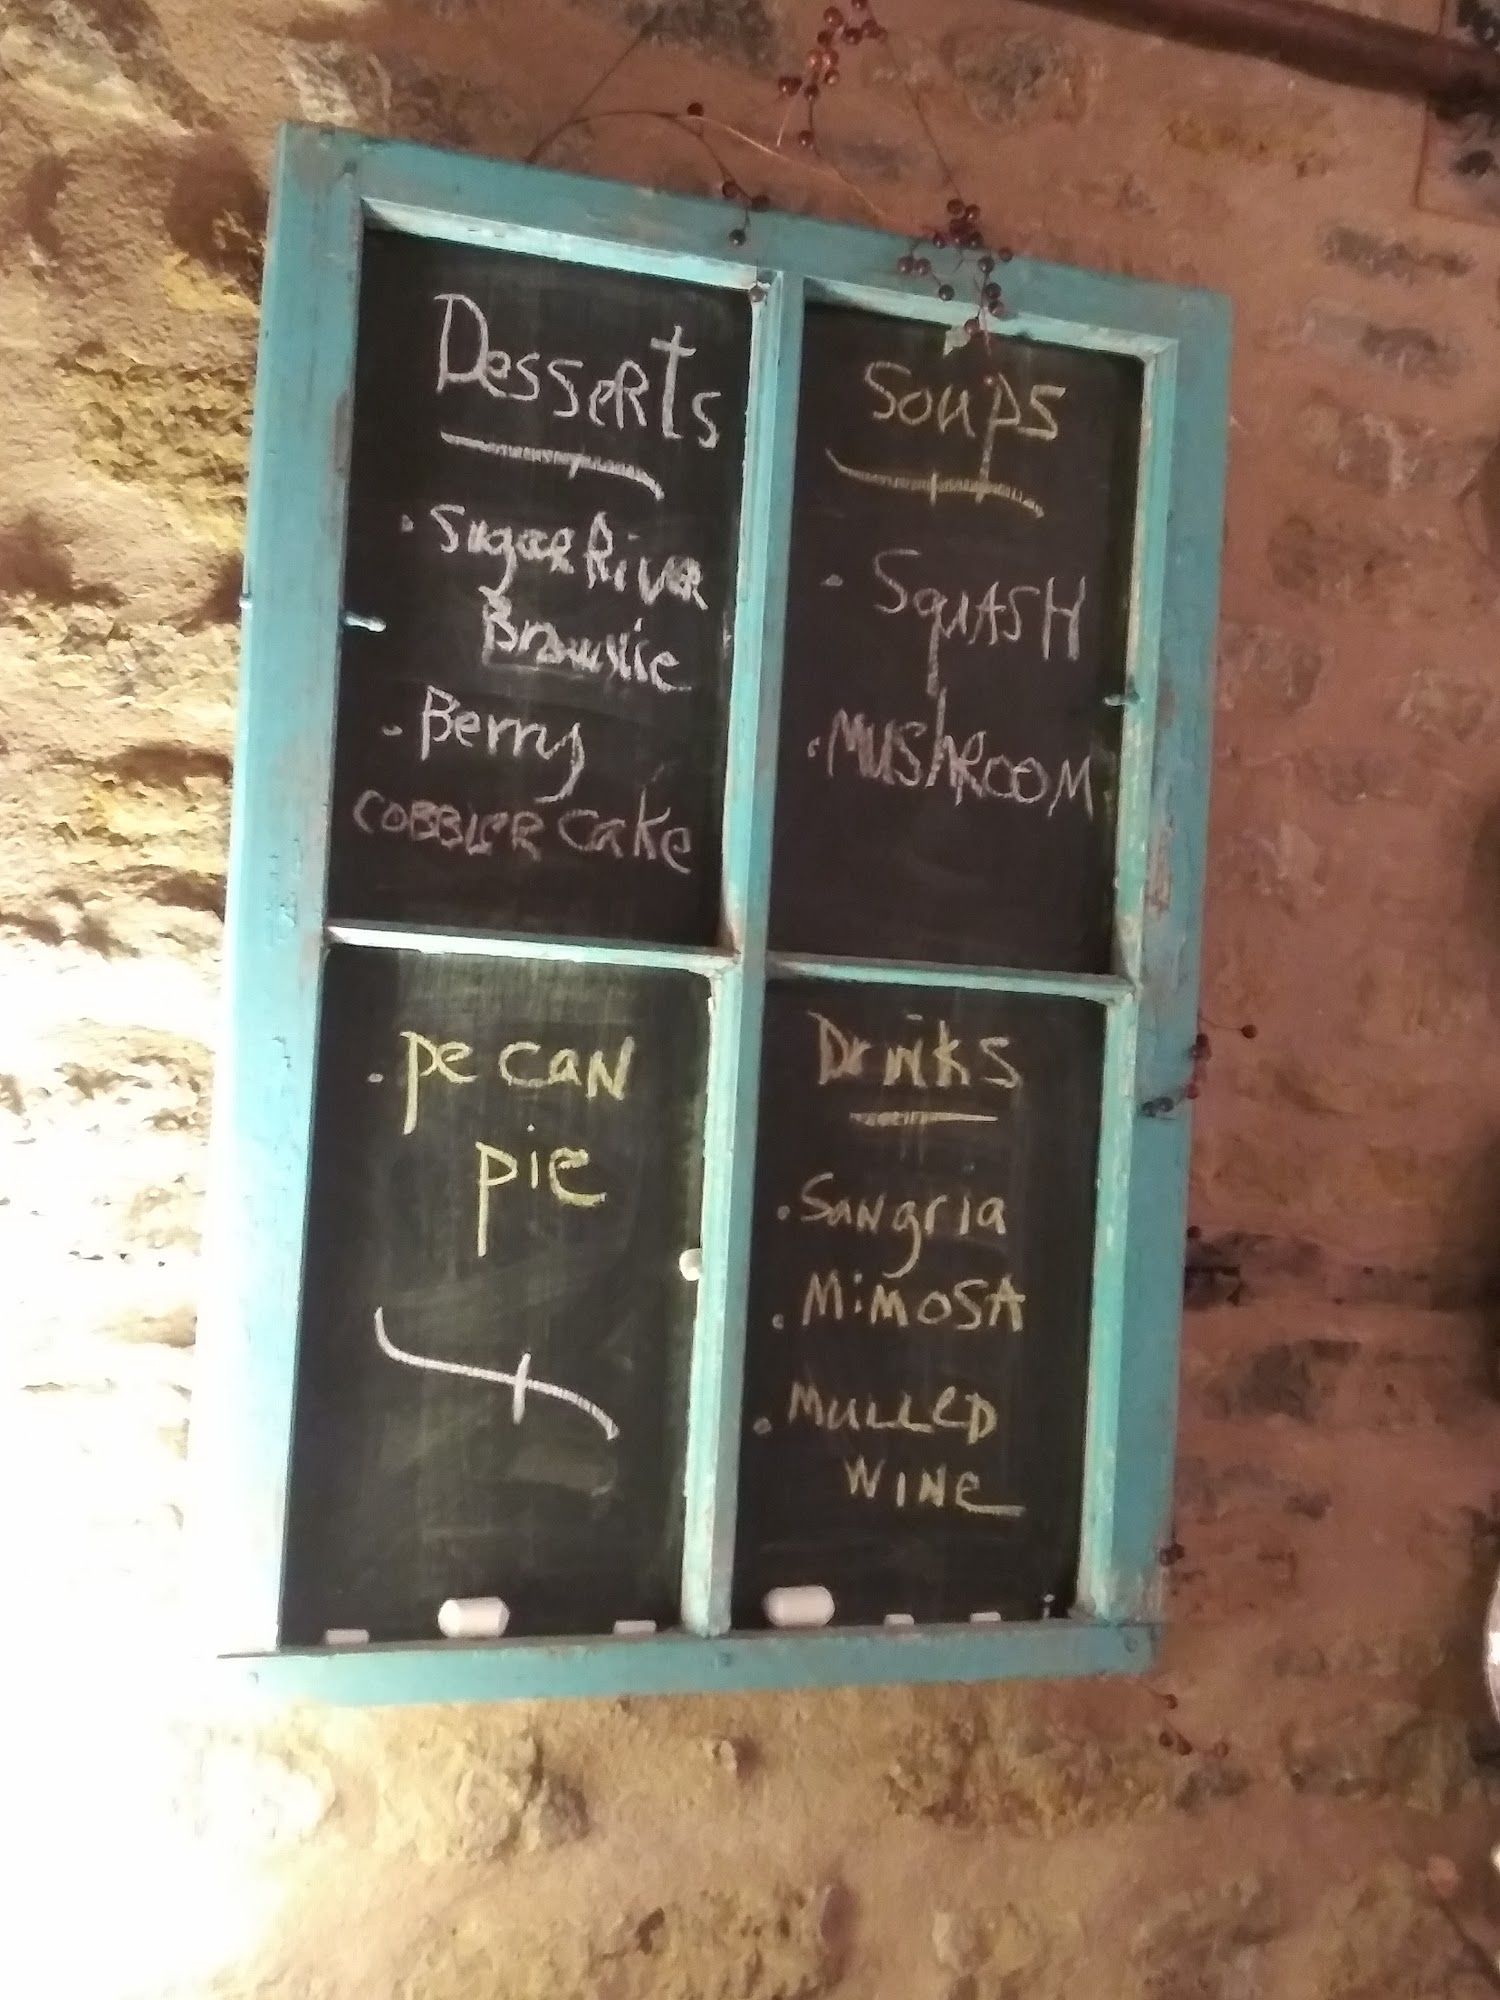 Desserts
• Sugar River
Brownie
• Berry
COBBLER Cake
• pecan
pie
Soups
• SquASH
• MUShROOM
Drinks
• Sangria
• MiMOSA
• MULLeD
WINe